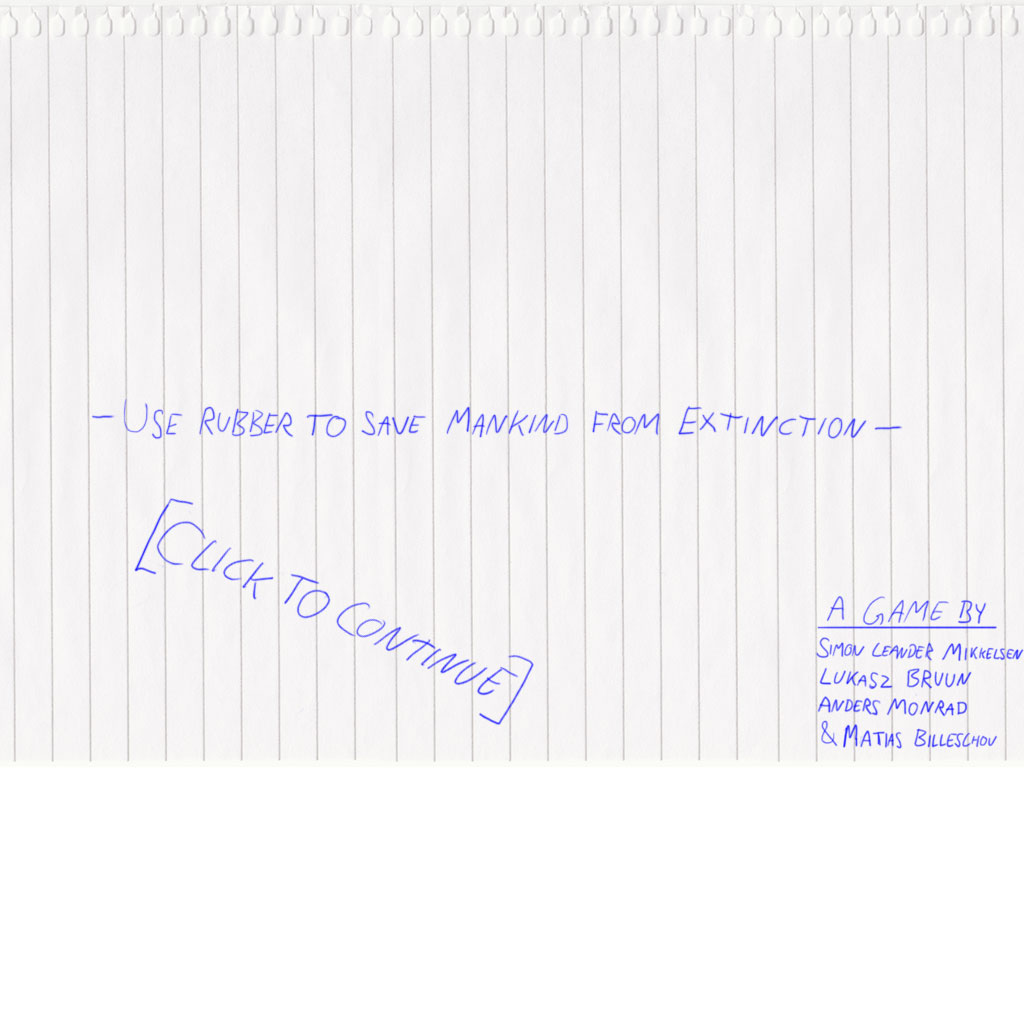 - USE RUBBER TO SAVE MANKIND FROM EXTINCTION -
[CLICK TO CONTINUE]
A GAME BY
SIMON LEANDER MIKKELSEN
LUKASZ BRUUN
ANDERS MONRAD
& MATIAS BILLESCHOU